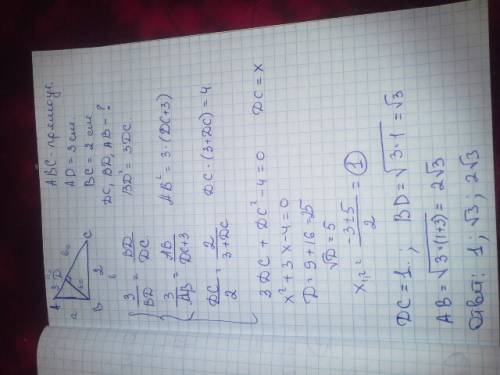 ABC - прямоуг.
AD = 3 см
BC = 2 см
DC, BD, AB = ?
A
3
D
a
B
2
C
3/BD = BD/DC
BD² = 3DC
3/AB = AB/DC+3
AB² = 3·(DC+3)
DC/2 = 2/3+DC
DC·(3+DC) = 4
3DC + DC² - 4 = 0
DC = x
x² + 3x - 4 = 0
D = 9 + 16 = 25
√D = 5
x₁,₂ = -3±5/2 = 1
DC = 1. , BD = √3·1 = √3
AB = √3·(1+3) = 2√3
Ответ: 1; √3; 2√3